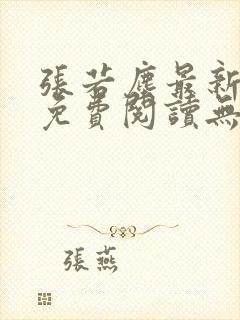 張若塵最新
免費閱讀無
張燕